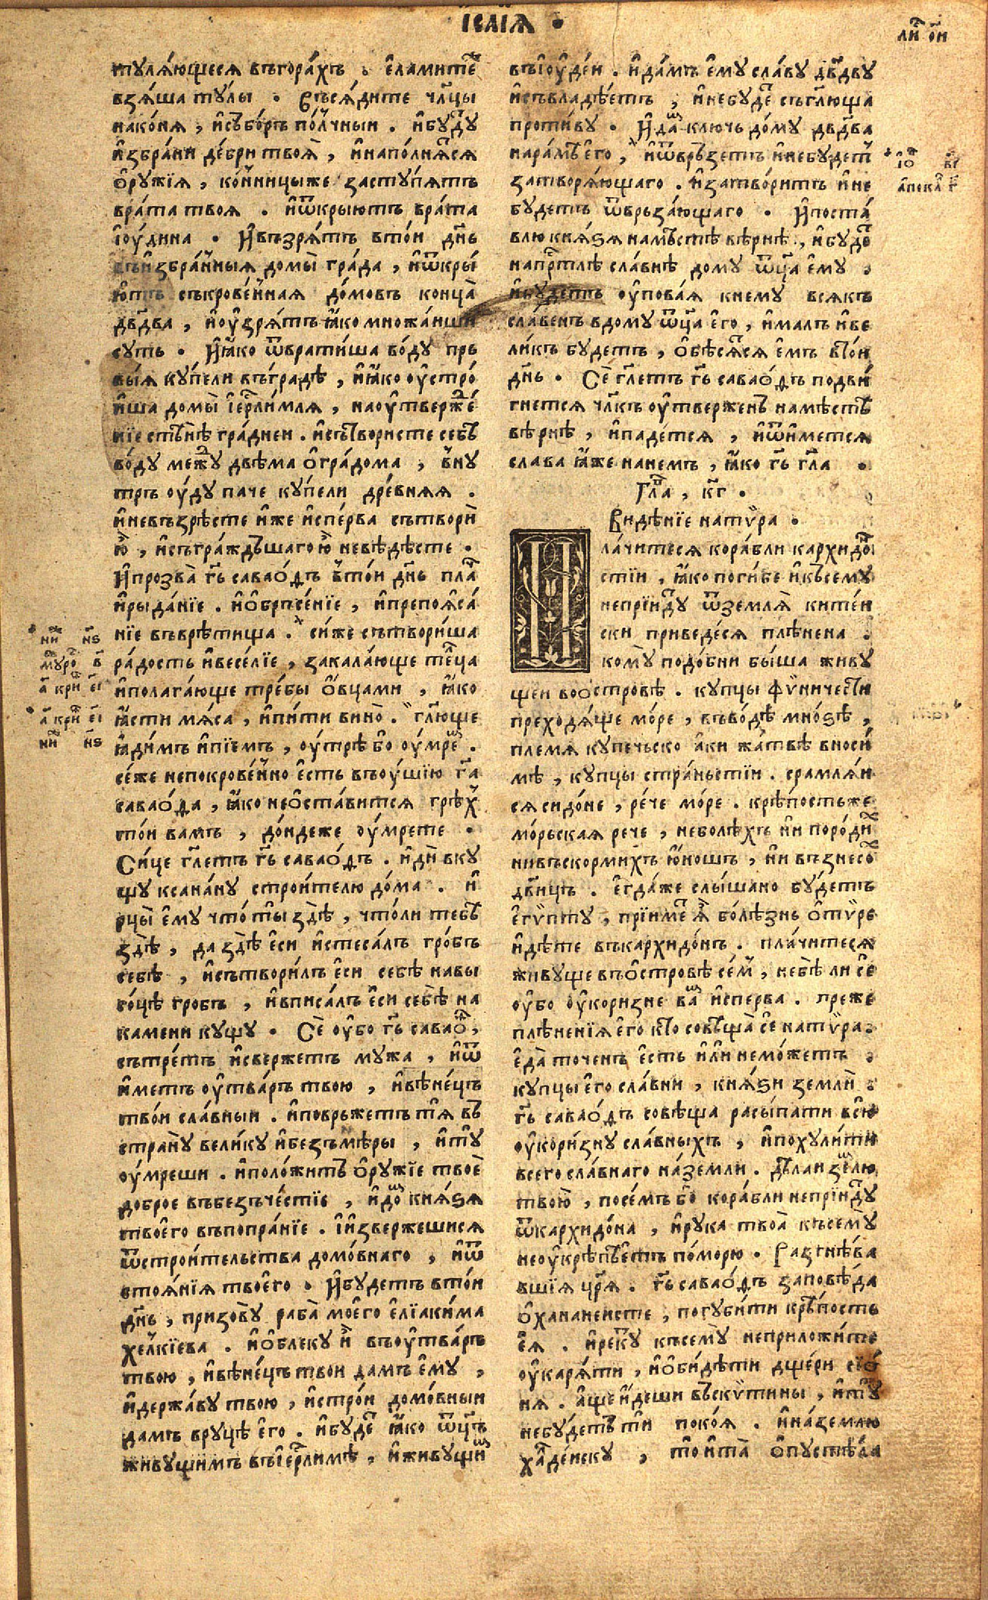 І҆саїѧ .
ли́ст ои҃
тулѧ́ющесѧ въгора́хъ . є҆ламитѐ
взѧ́ша ту́лы . Сѣсѧ́дите чл҃цы
наконѧ̀ , и҆събо́ръ по́лчныи . и҆бу́дꙋ
и҆збра́ни де́бри твоѧ̀ , и҆напо́лнѧсѧ
ѻ҆ру́жїѧ , ко́нницыже застꙋ́пѧтъ
врата̀ твоѧ . и҆ѿкры́ютъ врата̀
і҆ꙋ́дина . И҆възрѧ́тъ втои́ дн҃ь
въи҆збра́нныѧ домы̀ гра́да , и҆ѿкры́
ютъ съкрове́ннаѧ до́мовъ конца̀
дв҃два , и҆оу҆зрѧ́тъ ꙗ҆́ко мно́жаиши
сꙋть . И҆ꙗ҆́ко ѿврати́ша во́дꙋ пръ
выѧ кꙋпе́ли въгра́дѣ , и҆ꙗ҆́ко оу҆стро́
и҆ша домы̀ і҆ерл҃имлѧ , наоу҆твержде́
нїе стѣ́нѣ гра́днеи . и҆сътвори́сте себѣ̀
во́дꙋ междꙋ̀ двѣма̀ ѻ҆гра́дома , внꙋ́
трь оу҆́дꙋ па́че кꙋпе́ли дре́внѧѧ .
и҆невъзрѣ́сте и҆́же и҆спе́рва сътвори́
ю҆̀ , и҆съгра́ждьшаго ю҆̀ невѣ́дѣсте .
И҆прозва̀ гд҃ь савао́ѳъ втои́ дн҃ь пла́
и҆рыда́нїе . и҆ѻ҆бръсе́нїе , и҆препоѧ́са
нїе въврѣ́тища . сїи́же сътвори́ша
ра́дость и҆весе́лїе , закала́юще телца̀
и҆полага́юще тре́бы ѻ҆́вцами , ꙗ҆́ко
ꙗ҆́сти мѧ́са , и҆пи́ти вино̀ . гл҃юще
ꙗ҆ди́мъ и҆пїе́мъ , оу҆́трѣ бо оу҆́мрем .
се́же непокрове́нно є҆́сть въоу҆́шїю гд҃а
савао́ѳа , ꙗ҆́ко неѻ҆ста́витсѧ грѣ́х
тои́ ва́мъ , до́ндеже оу҆́мрете .
Си́це гл҃етъ гд҃ь савао́ѳъ . и҆дѝ вкꙋ
щꙋ ксана́нꙋ строи́телю до́ма . и҆
рцы̀ є҆мꙋ̀ что̀ ты̀ здѣ̀ , что́ли тебѣ̀
здѣ̀ , да здѣ̀ є҆сѝ и҆стеса́лъ гро́бъ
себѣ̀ , и҆сътвори́лъ є҆сѝ себѣ̀ навы
со́цѣ гробъ , и҆вписа́лъ є҆сѝ себѣ̀ на
ка́мени кꙋщꙋ . Сѐ оу҆бо гд҃ь савао́ѳ ,
сътре́тъ и҆све́ржетъ мꙋ́жа , и҆ѿ
и҆́метъ оу҆тва́рь твою̀ , и҆вѣне́цъ
твои́ сла́вныи . и҆повръ́жетъ тѧ̀ въ
странꙋ̀ вели́кꙋ и҆безъмѣ́ры , и҆тꙋ̀
оу҆́мреши . и҆положи́тъ ѻ҆рꙋ́жїе твоѐ
до́брое въбезъче́стїе , и҆до́мъ кнѧ́ѕѧ
твоего̀ въпопра́нїе . и҆и҆зве́ржешисѧ
ѿстрои́тельства домо́внаго , и҆ѿ
стоѧ́нїѧ твоего̀ . И҆бꙋ́детъ втои́
дн҃ь , призовꙋ̀ раба̀ моего̀ є҆лїаки́ма
хе́лкїева . и҆ѻ҆блекꙋ̀ и҆̀ въоу҆тва́рь
твою̀ , и҆вѣне́цъ твои́ да́мъ є҆мꙋ̀ ,
и҆держа́вꙋ твою̀ , и҆стро́и домо́вныи
да́мъ врꙋ́цѣ є҆го̀ . и҆бꙋ́де ꙗ҆́ко ѻ҆ц҃ъ
живꙋ́щимъ въі҆ерл҃и́мѣ , и҆живꙋ́щим
въі҆ꙋде́и . и҆да́мъ є҆мꙋ̀ сла́вꙋ дв҃двꙋ
и҆съвладѣ́етъ , и҆небꙋ́де съгл҃юща
проти́вꙋ . И҆да́мъ клю́чь до́мꙋ дв҃два
нара́мѣ є҆го̀ , и҆ѿвръ́зетъ и҆небꙋ́детъ
затворѧ́ющаго . и҆затвори́тъ и҆не
бꙋ́детъ ѿврьза́ющаго . И҆поста́
влю кнѧ́ѕѧ намѣ́стѣ вѣ́рнѣ , и҆бꙋ́де
напрⷭ҇то́лѣ сла́внѣ до́мꙋ ѻ҆ц҃а є҆мꙋ̀ .
и҆бꙋ́детъ оу҆пова́ѧ кнемꙋ̀ всѧ́къ
сла́венъ вдомꙋ̀ ѻ҆ц҃а є҆го̀ , и҆ма́лъ и҆ве
ли́къ бꙋ́детъ , ѻ҆бѣ́сѧсѧ є҆́мъ вто́и
дн҃ь . Сѐ гл҃етъ гд҃ь савао́ѳъ подви́
гнетсѧ чл҃къ оу҆тверже́нъ намѣ́стѣ
вѣ́рнѣ , и҆паде́тсѧ , и҆ѿи҆́метсѧ
сла́ва ꙗ҆́же нане́мъ , ꙗ҆́ко гд҃ь гл҃а .
Глⷡ҇а , кг҃ .
Видѣ́нїе натѷ́ра .
Пла́читесѧ корабли̑ кархидо́
стїи , ꙗ҆́ко поги́бе и҆ксемꙋ̀
непрїи́дꙋ ѿземлѧ̀ ките́и
ски приведе́сѧ плѣ́нена .
комꙋ̀ подо́бни бы́ша живꙋ́
щеи воо́стровѣ . кꙋпцы̀ фѷни́честїи
преходѧ́ще мо́ре , въво́дѣ мно́ѕѣ ,
пле́мѧ кꙋпе́чьско а҆́ки жа́твѣ вноси́
мѣ , кꙋпцы̀ стра́ньстїи . срамлѧ́и
сѧ сидо́не , ре́че мо́ре . крѣ́постьже
мо́рьскаѧ рече , неболѣ́хъ ни породи́х
нивъскорми́хъ ю҆́ношъ , ни възнесо́х
дв҃ицъ . є҆гда́же слы́шано бꙋ́детъ
є҆гѵ́птꙋ , прїи́ме ѧ҆̀ болѣ́знь ѻ҆тѵ́ре
и҆дѣ́те въкархидо́нъ . пла́читесѧ
живꙋ́ще въо́стровѣ се́мъ , небѣ̀ ли сѐ
оу҆бо оу҆кори́зне ва́мъ и҆спе́рва . пре́же
плѣне́нїѧ є҆го̀ кто̀ совѣща̀ сѐ натѵ́ра .
є҆да̀ то́ченъ є҆́сть и҆лѝ немо́жетъ .
кꙋпцы̀ є҆го̀ сла́вни , кнѧ́ѕи землѝ .
гд҃ь савао́ѳъ совѣща̀ расы́пати всю̀
оу҆кори́знꙋ сла́вныхъ , и҆похꙋли́ти
всего̀ сла́внаго на́земли . дѣ́лаи зе́млю
твою̀ , посе́мъ бо корабли̑ непрїи́дꙋ
ѿкархидо́на , и҆рꙋка̀ твоѧ̀ късемꙋ̀
неоу҆крѣпѣ́етъ по́морю . Разгнѣ́ва
вшїѧ цр҃ѧ . гд҃ь савао́ѳъ заповѣ́да
ѻ҆ханане́исте , погꙋби́ти крѣ́пость
є҆ѧ̀ . и҆рекꙋ́ къ семꙋ̀ неприложи́те
оу҆карѧ́ти , и҆ѻ҆би́дѣти дще́ри сїѡ́
нѧ . а҆́ще и҆́деши въскѷти́ны , и҆тꙋ̀
небꙋ́детъ тѝ поко́ѧ . и҆на́землю
халде́искꙋ , то̀ и҆та̀ ѻ҆пꙋстѣ́ла